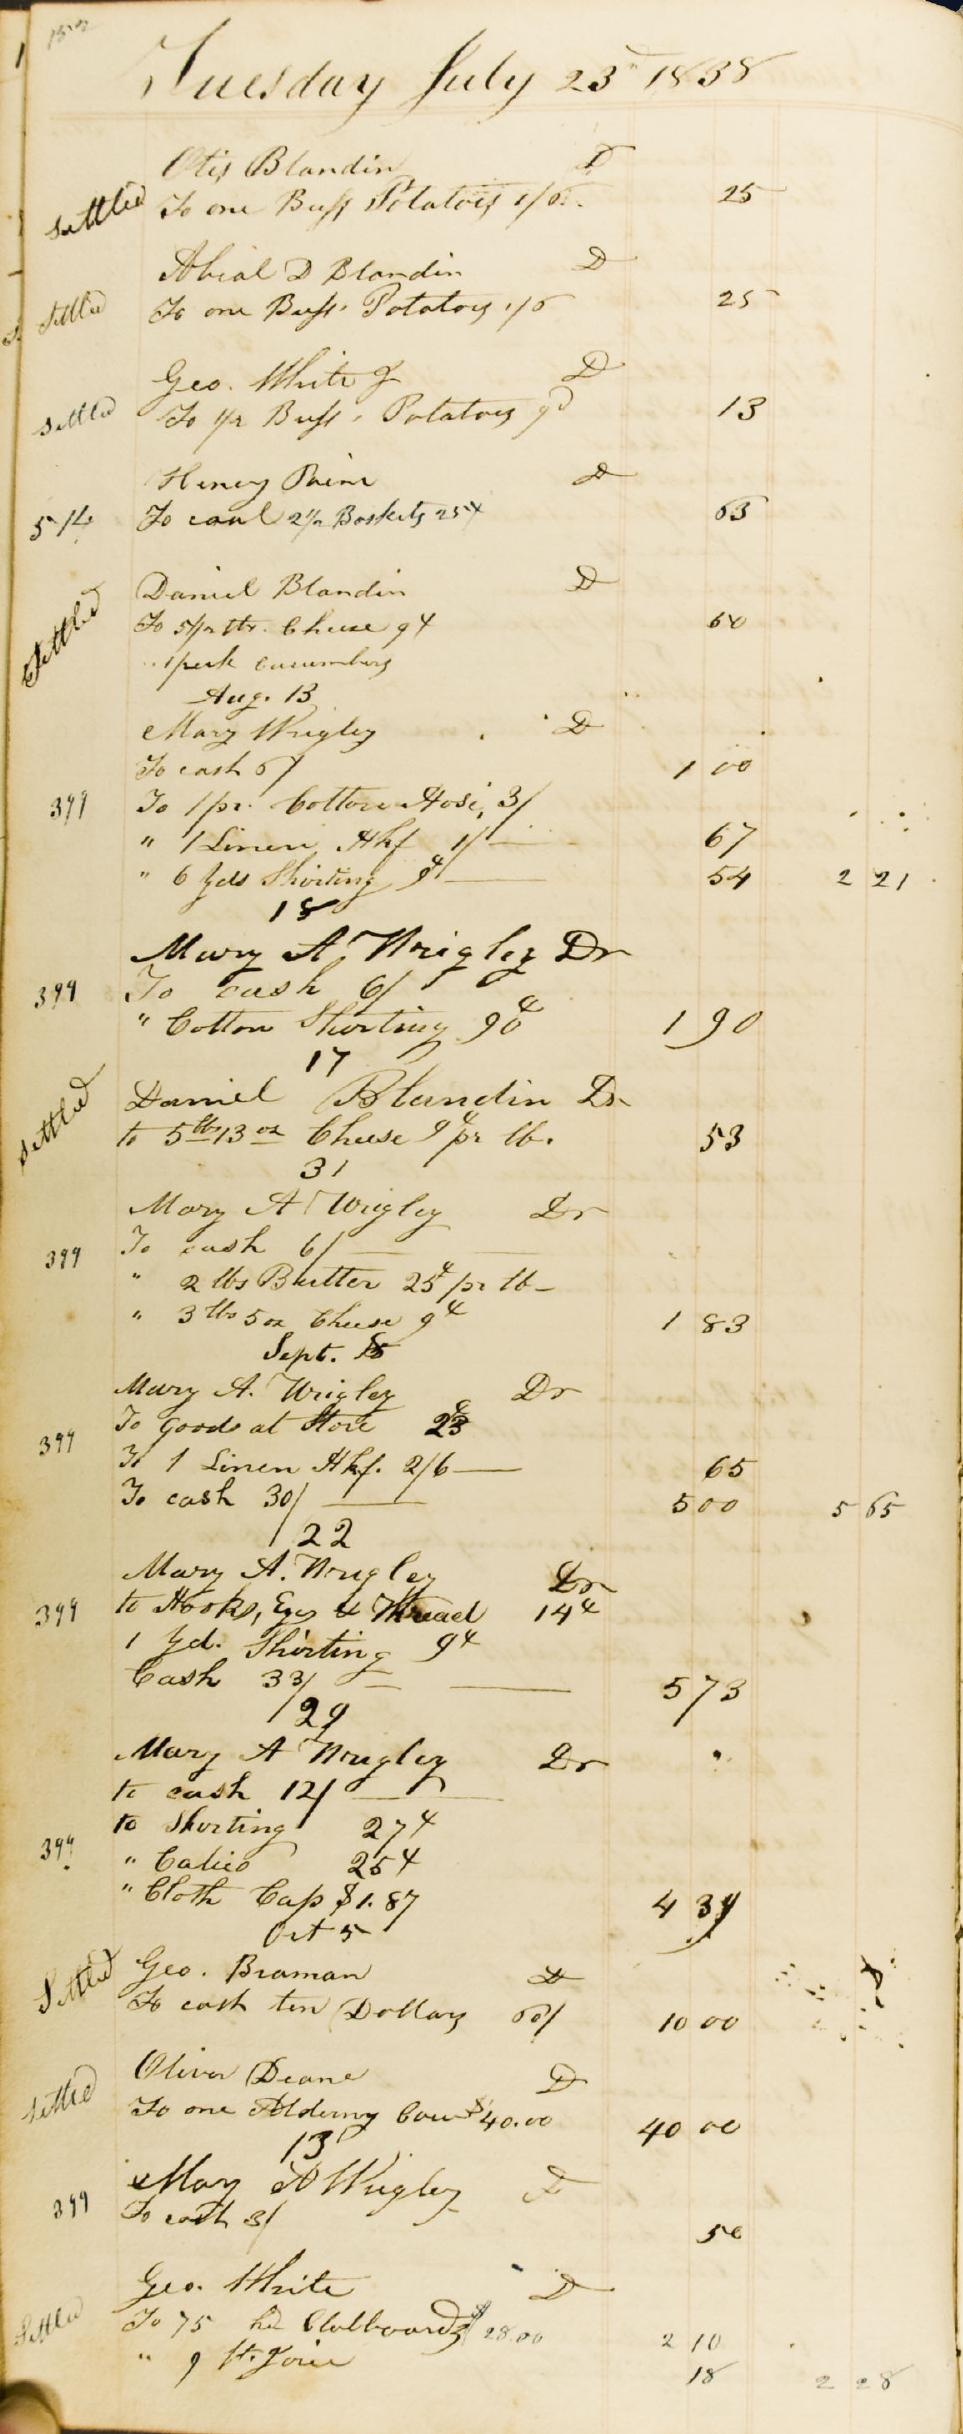 Tuesday July 23 1838
Otis Blandin D
Settled To one Bush Potatoes 1/6 25
Abial D Blandin D
Settled To one Bush Potatoes 1/6 25
Geo. White Jr D
Settled To 1/2 Bush Potatoes 9d 13
Henry D
514 To 2 1/2 Baskets 25¢ 63
Daniel Blandin D
Settled To 5 1/2 lbs. Cheese 9¢ 60
" 1 peck cucumbers
Aug. 13
Mary Wrigley D
To cash 6/ 1 00
399 To 1 pr. Cotton Hose, 3/
" 1 Linen Hkf 1/ 67
" 6 Yds Shirting 9¢ 54 2 21
18
Mary A Wrigley Dr
399 To cash 6/
" Cotton Shirting 90¢ 1 90
17
Settled Daniel Blandin Dr
to 5 lbs 13 oz Cheese 9¢ pr lb. 53
31
Mary A Wrigley Dr
399 To cash 6/
" 2 lbs Butter 25¢ pr lb
" 3 lbs 5 oz Cheese 9¢ 1 83
Sept.
Mary A. Wrigley Dr
399 To goods at Store 23¢
To 1 Linen Hkf. 2/6 65
To cash 30/ 5 00 5 65
22
Mary A. Wrigley Dr
399 to Hooks, Eyes & Thread 14¢
1 Yd. Shirting 9¢
Cash 33/ 5 73
29
Mary A Wrigley Dr
to cash 12/
to Shirting 27¢
399 " Calico 25¢
" Cloth Cap $1.87 4 39
Oct 5
Settled Geo. Braman D
To cash ten Dollars 60/ 10 00
Oliver Deane D
Settled To one Alderny Cow $40.00 40 00
13
Mary A Wrigley D
399 To cash 3/ 50
Geo. White D
Settled To 75 Clabboards $28.00 2 10
" 9 ft. Joice 18 2 28